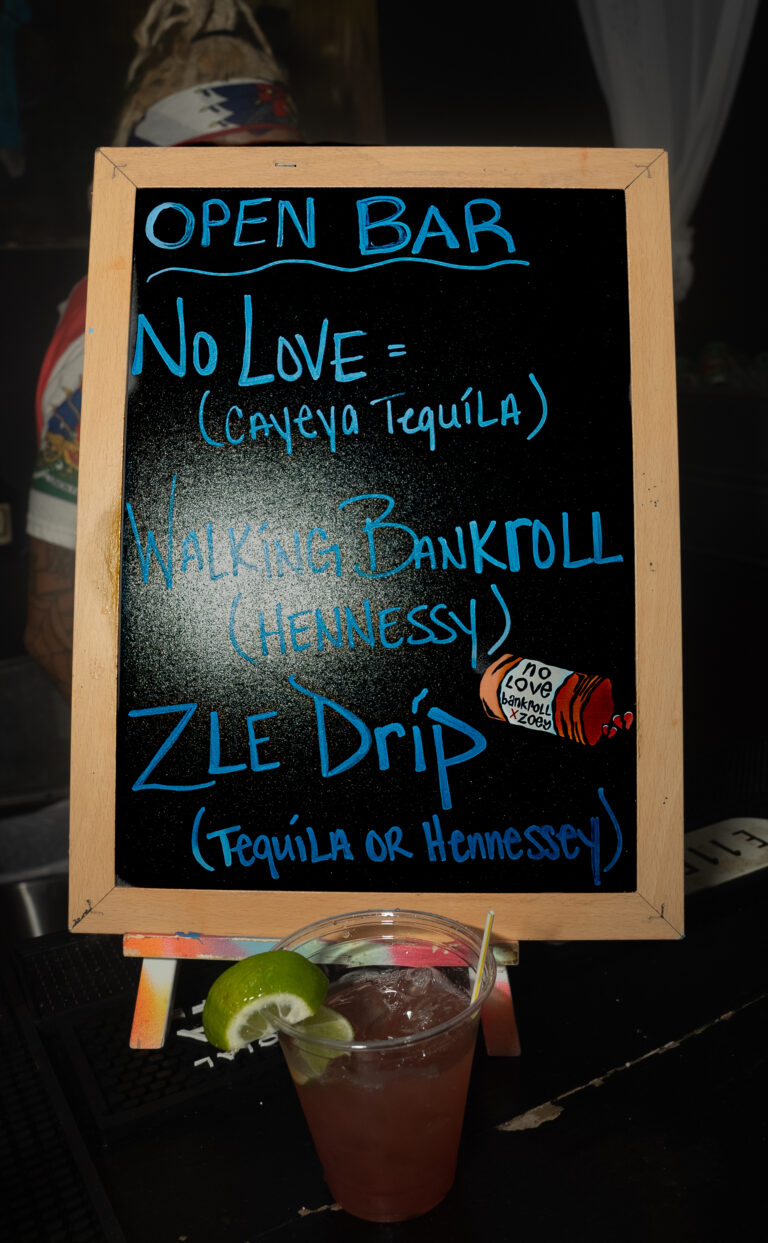 OPEN BAR
No LOVE =
(CAyeya TequíLA)
WALKING BANKrOLL
(HENNESSY)
no
LOVE
bankroLL
x zoey
ZLE Dríp
(TequíLA OR Hennessey)